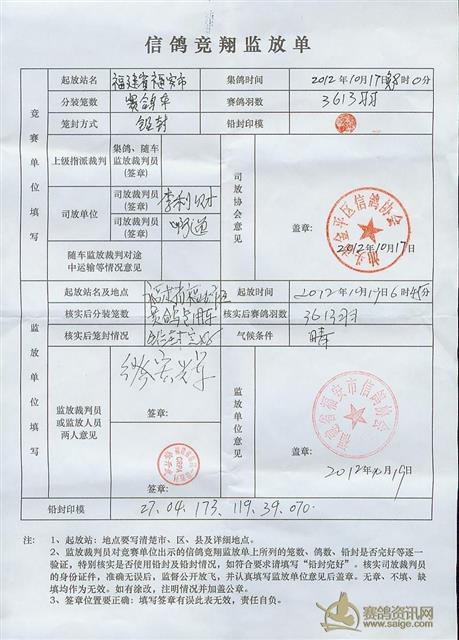 信鸽竞翔监放单
起放站名 福建省福安市 集鸽时间 2012年10月17日 时0分
分装笼数 赛鸽车 赛鸽羽数 3613羽
笼封方式 铅封 铅封印模
竞赛单位填写
上级指派裁判 集鸽、随车监放裁判员(签章)
司放单位 司放裁判员(签章) 李利
司放裁判员(签章)
随车监放裁判对途中运输等情况意见
司放协会意见
汕头市金平区信鸽协会
盖章:
2012年10月17日
监放单位填写
起放站名及地点 福建省福安 起放时间 2012年10月19日6时45分
核实后分装笼数 赛鸽专用车 核实后赛鸽羽数 3613羽
核实后笼封情况 铅封完好 气候条件 晴
监放裁判员或监放人员两人意见
签章:
签章:
CRPA
监放单位意见
福建省福安市信鸽协会
盖章:
2012年10月19日
铅封印模 27.04.173.119.39.070.
注: 1、起放站:地点要写清楚市、区、县及详细地点。
2、监放裁判员对竞赛单位出示的信鸽竞翔监放单上所列的笼数、鸽数、铅封是否完好等逐一
验证,特别核实是否使用铅封及铅封情况,如符合要求请填写“铅封完好”。核实司放裁判员
的身份证件,准确无误后,监督公开放飞,并认真填写监放单位意见后盖章。无章、不填、缺
填均作为无效。如有涂改,注明情况并加盖公章。
3、签章位置要正确;填写签章有误此表无效,责任自负。
赛鸽资讯网
www.saige.com